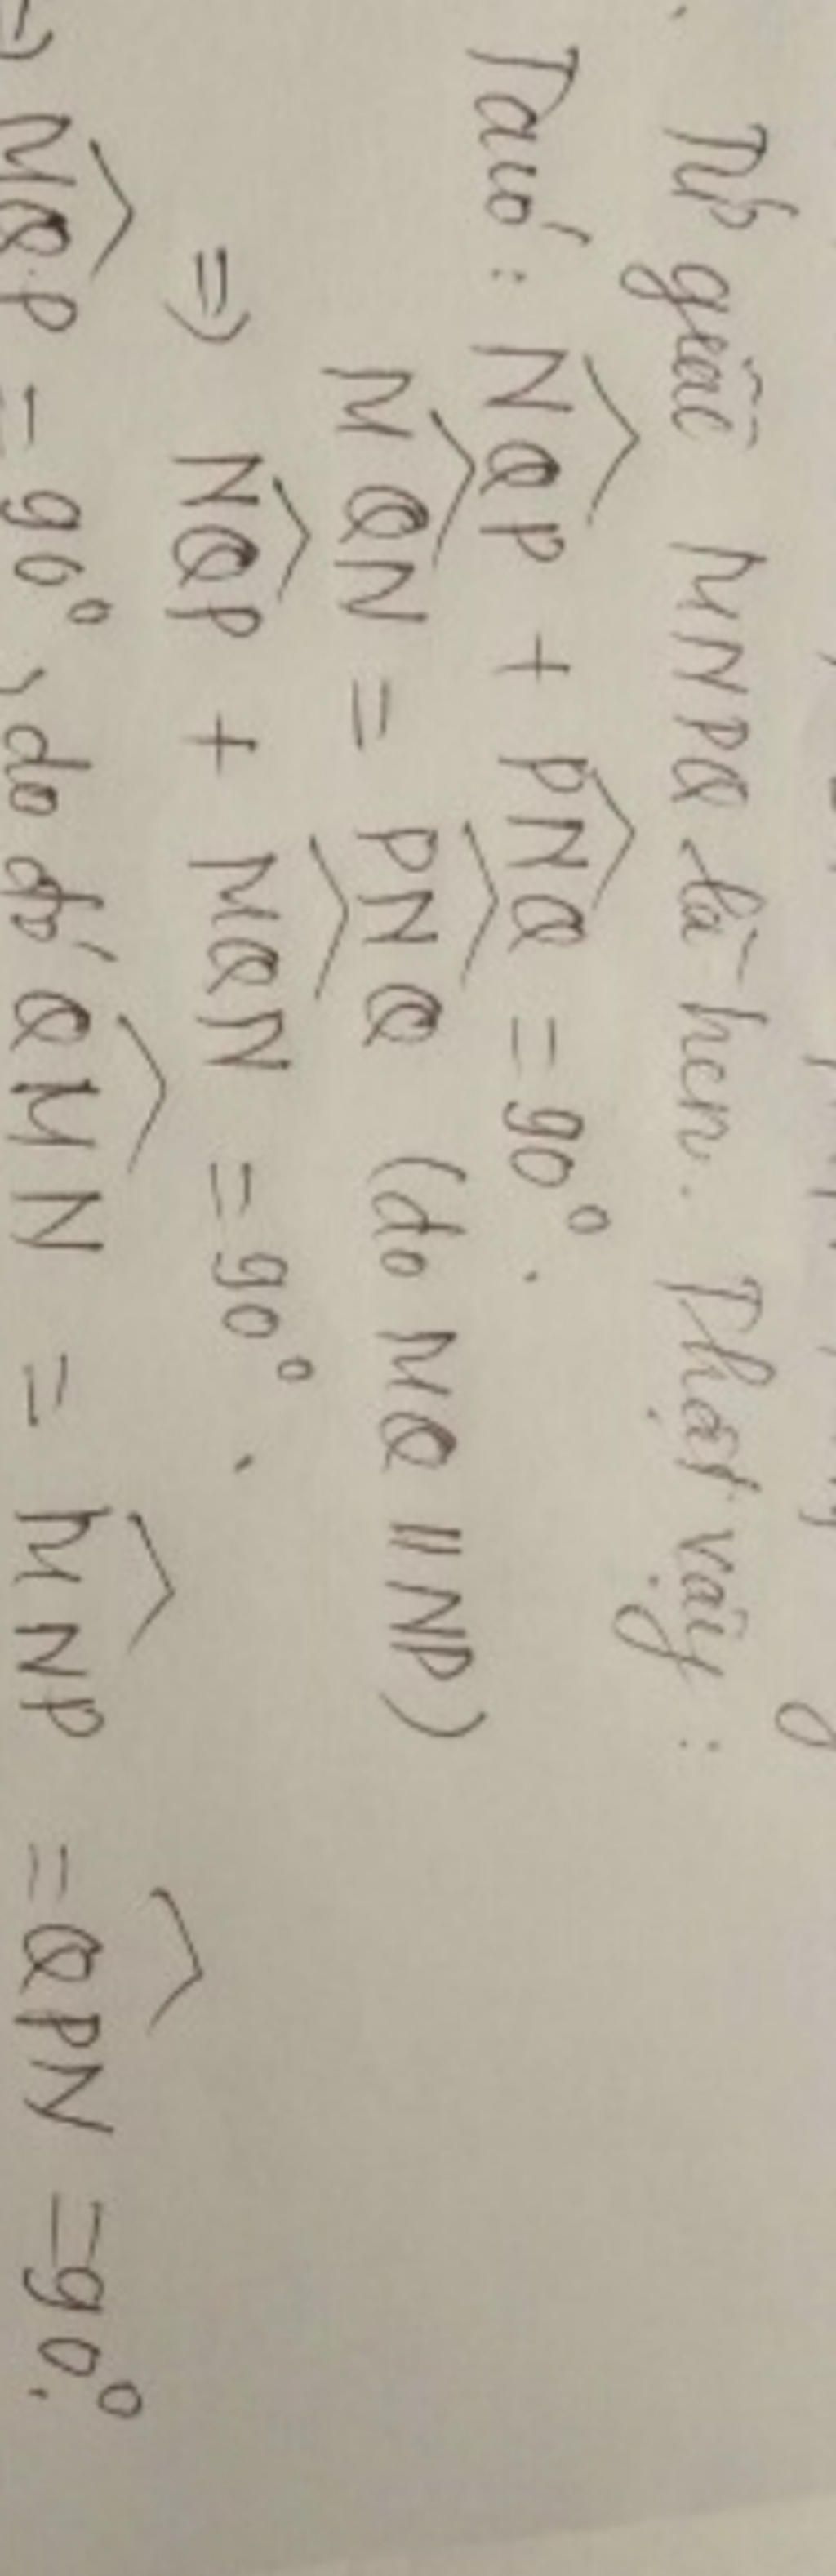 Tứ giác MNPQ là hcn. Thật vậy :
Ta có : \widehat{NQP} + \widehat{PNQ} = 90°.
\widehat{MQN} = \widehat{PNQ} (do MQ // NP)
=> \widehat{NQP} + \widehat{MQN} = 90°.
=> \widehat{MQP} = 90°, do đó \widehat{QMN} = \widehat{MNP} = \widehat{QPN} = 90°.